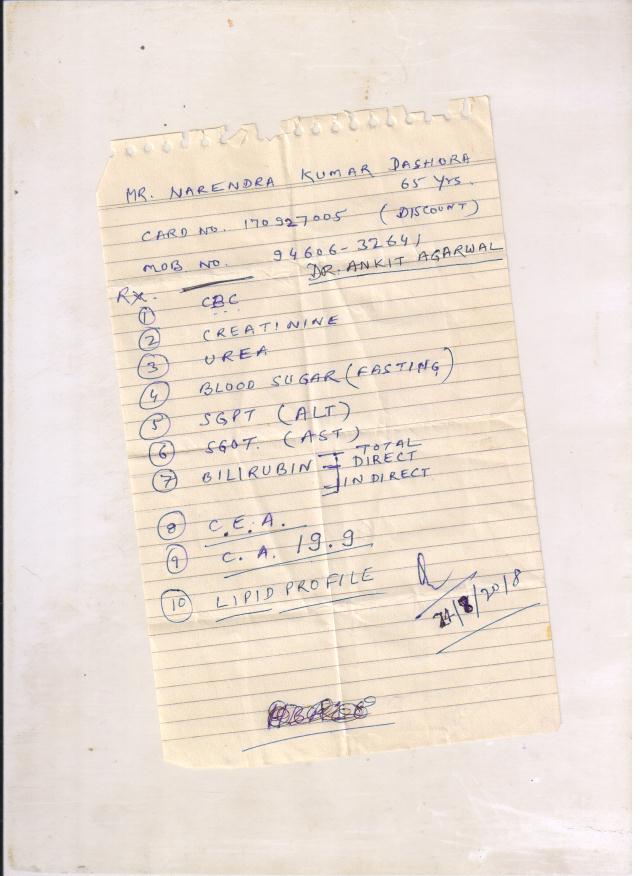 MR. NARENDRA KUMAR DASHORA
65 Yrs.
CARD NO. 170927005 (DISCOUNT)
MOB NO. 94606-32641
DR. ANKIT AGARWAL
Rx.
① CBC
② CREATININE
③ UREA
④ BLOOD SUGAR (FASTING)
⑤ SGPT (ALT)
⑥ SGOT. (AST)
⑦ BILIRUBIN TOTAL
DIRECT
INDIRECT
⑧ C.E.A.
⑨ C.A. 19.9
⑩ LIPID PROFILE
/8/2018